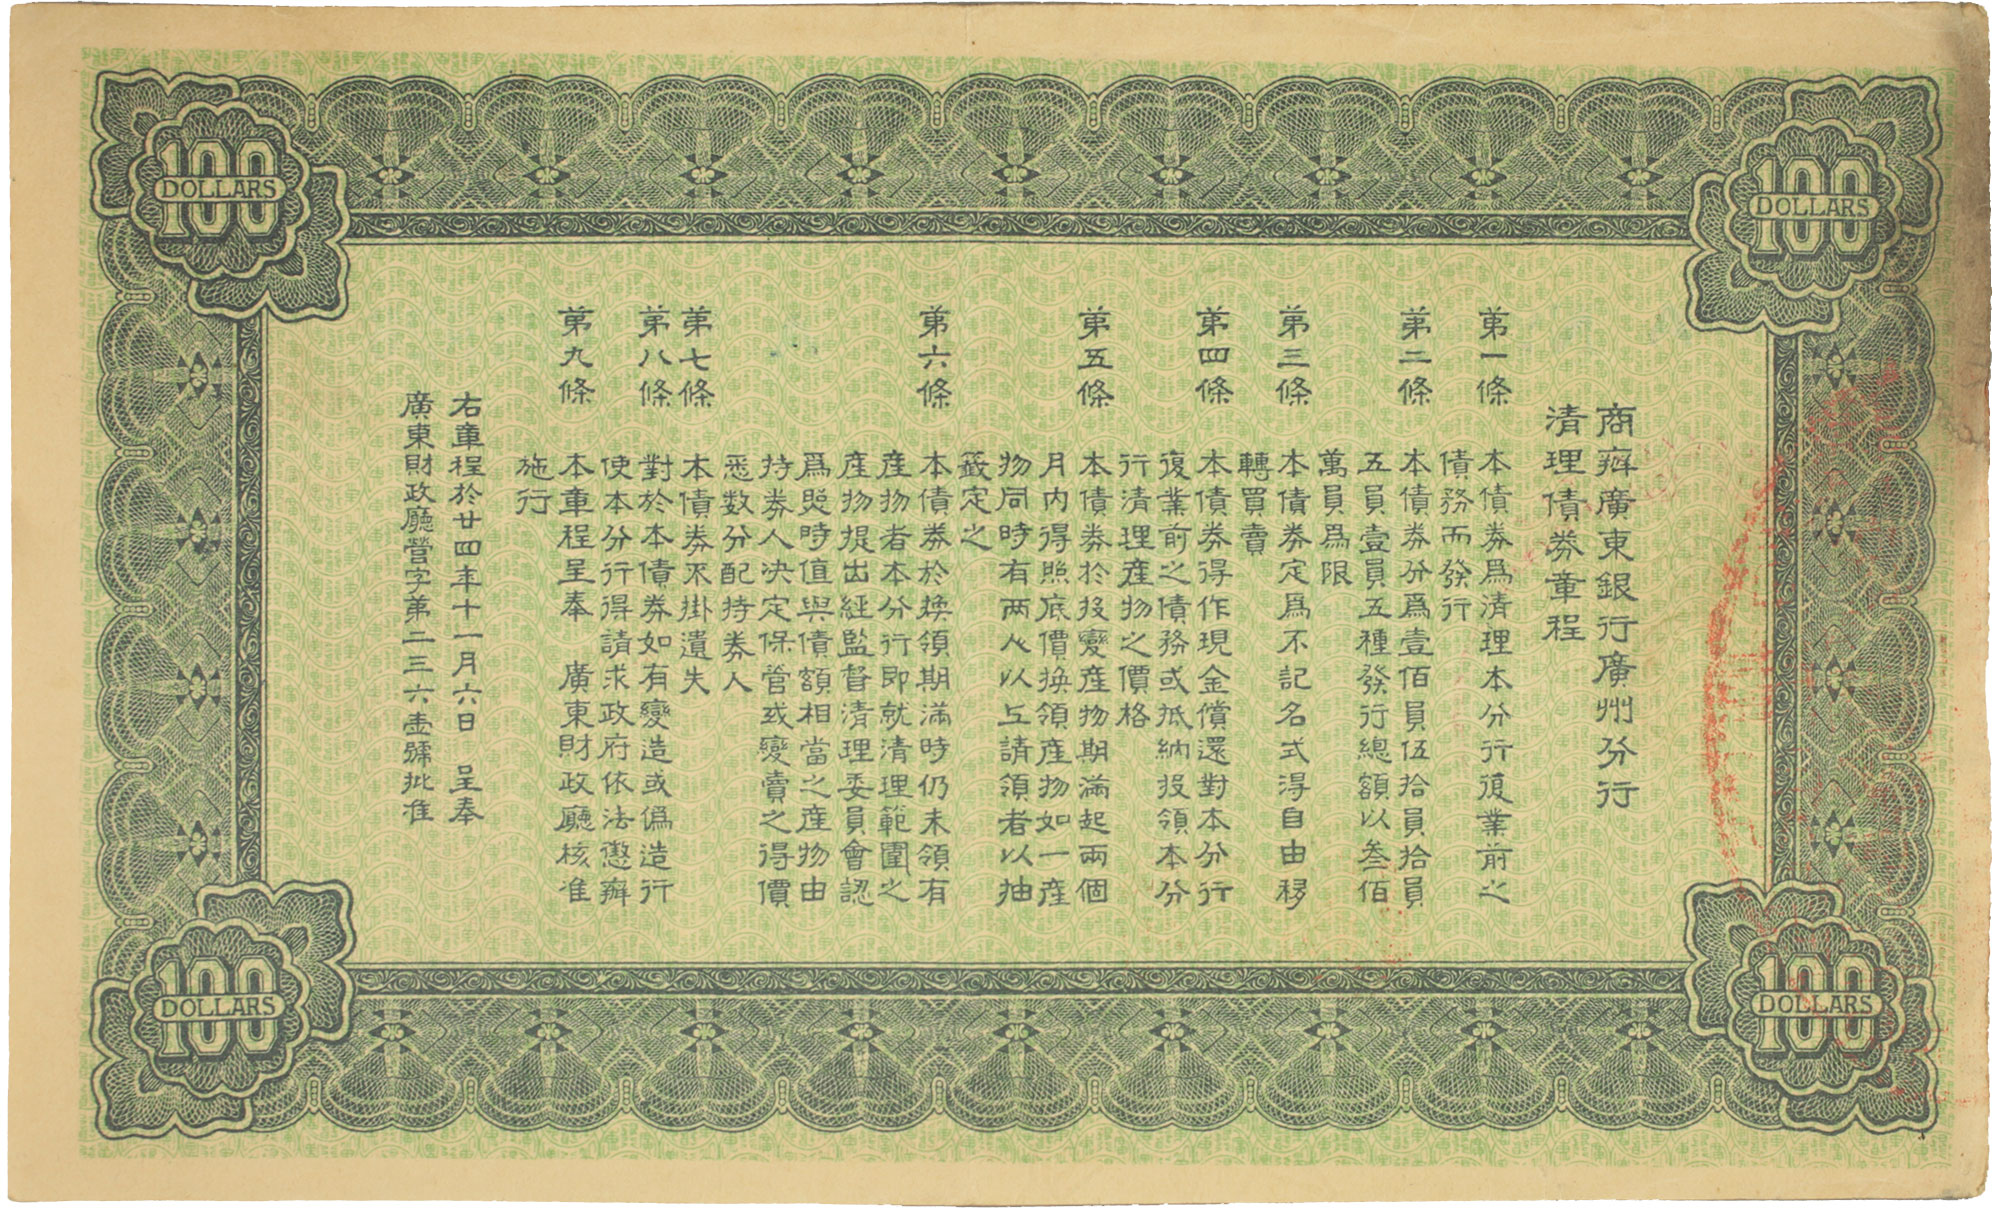 100
DOLLARS
100
DOLLARS
商辦廣東銀行廣州分行
清理債券章程
第一條 本債券爲清理本分行復業前之
債務而發行
第二條 本債券分爲壹佰員伍拾員拾員
五員壹員五種發行總額以叁佰
萬員爲限
第三條 本債券定爲不記名式得自由移
轉買賣
第四條 本債券得作現金償還對本分行
復業前之債務或抵納投領本分
行清理産物之價格
第五條 本債券於投變産物期滿起兩個
月内得照底價换領産物如一産
物同時有两人以上請領者以抽
籤定之
第六條 本債券於换領期滿時仍未領有
産物者本分行即就清理範圍之
産物提出経監督清理委員會認
爲照時值與債額相當之産物由
持券人决定保管或變賣之得價
悉数分配持券人
第七條 本債券不掛遺失
第八條 對於本債券如有變造或僞造行
使本分行得請求政府依法懲辦
第九條 本章程呈奉 廣東財政廳核准
施行
右章程於廿四年十一月六日 呈奉
廣東財政廳營字第二三六壹號批准
100
DOLLARS
100
DOLLARS